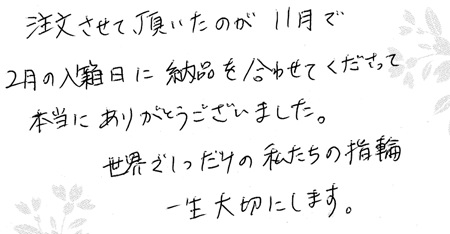 注文させて頂いたのが 11月で
2月の入籍日に 納品を合わせてくださって
本当に ありがとうございました。
世界で1つだけの 私たちの指輪
一生大切にします。